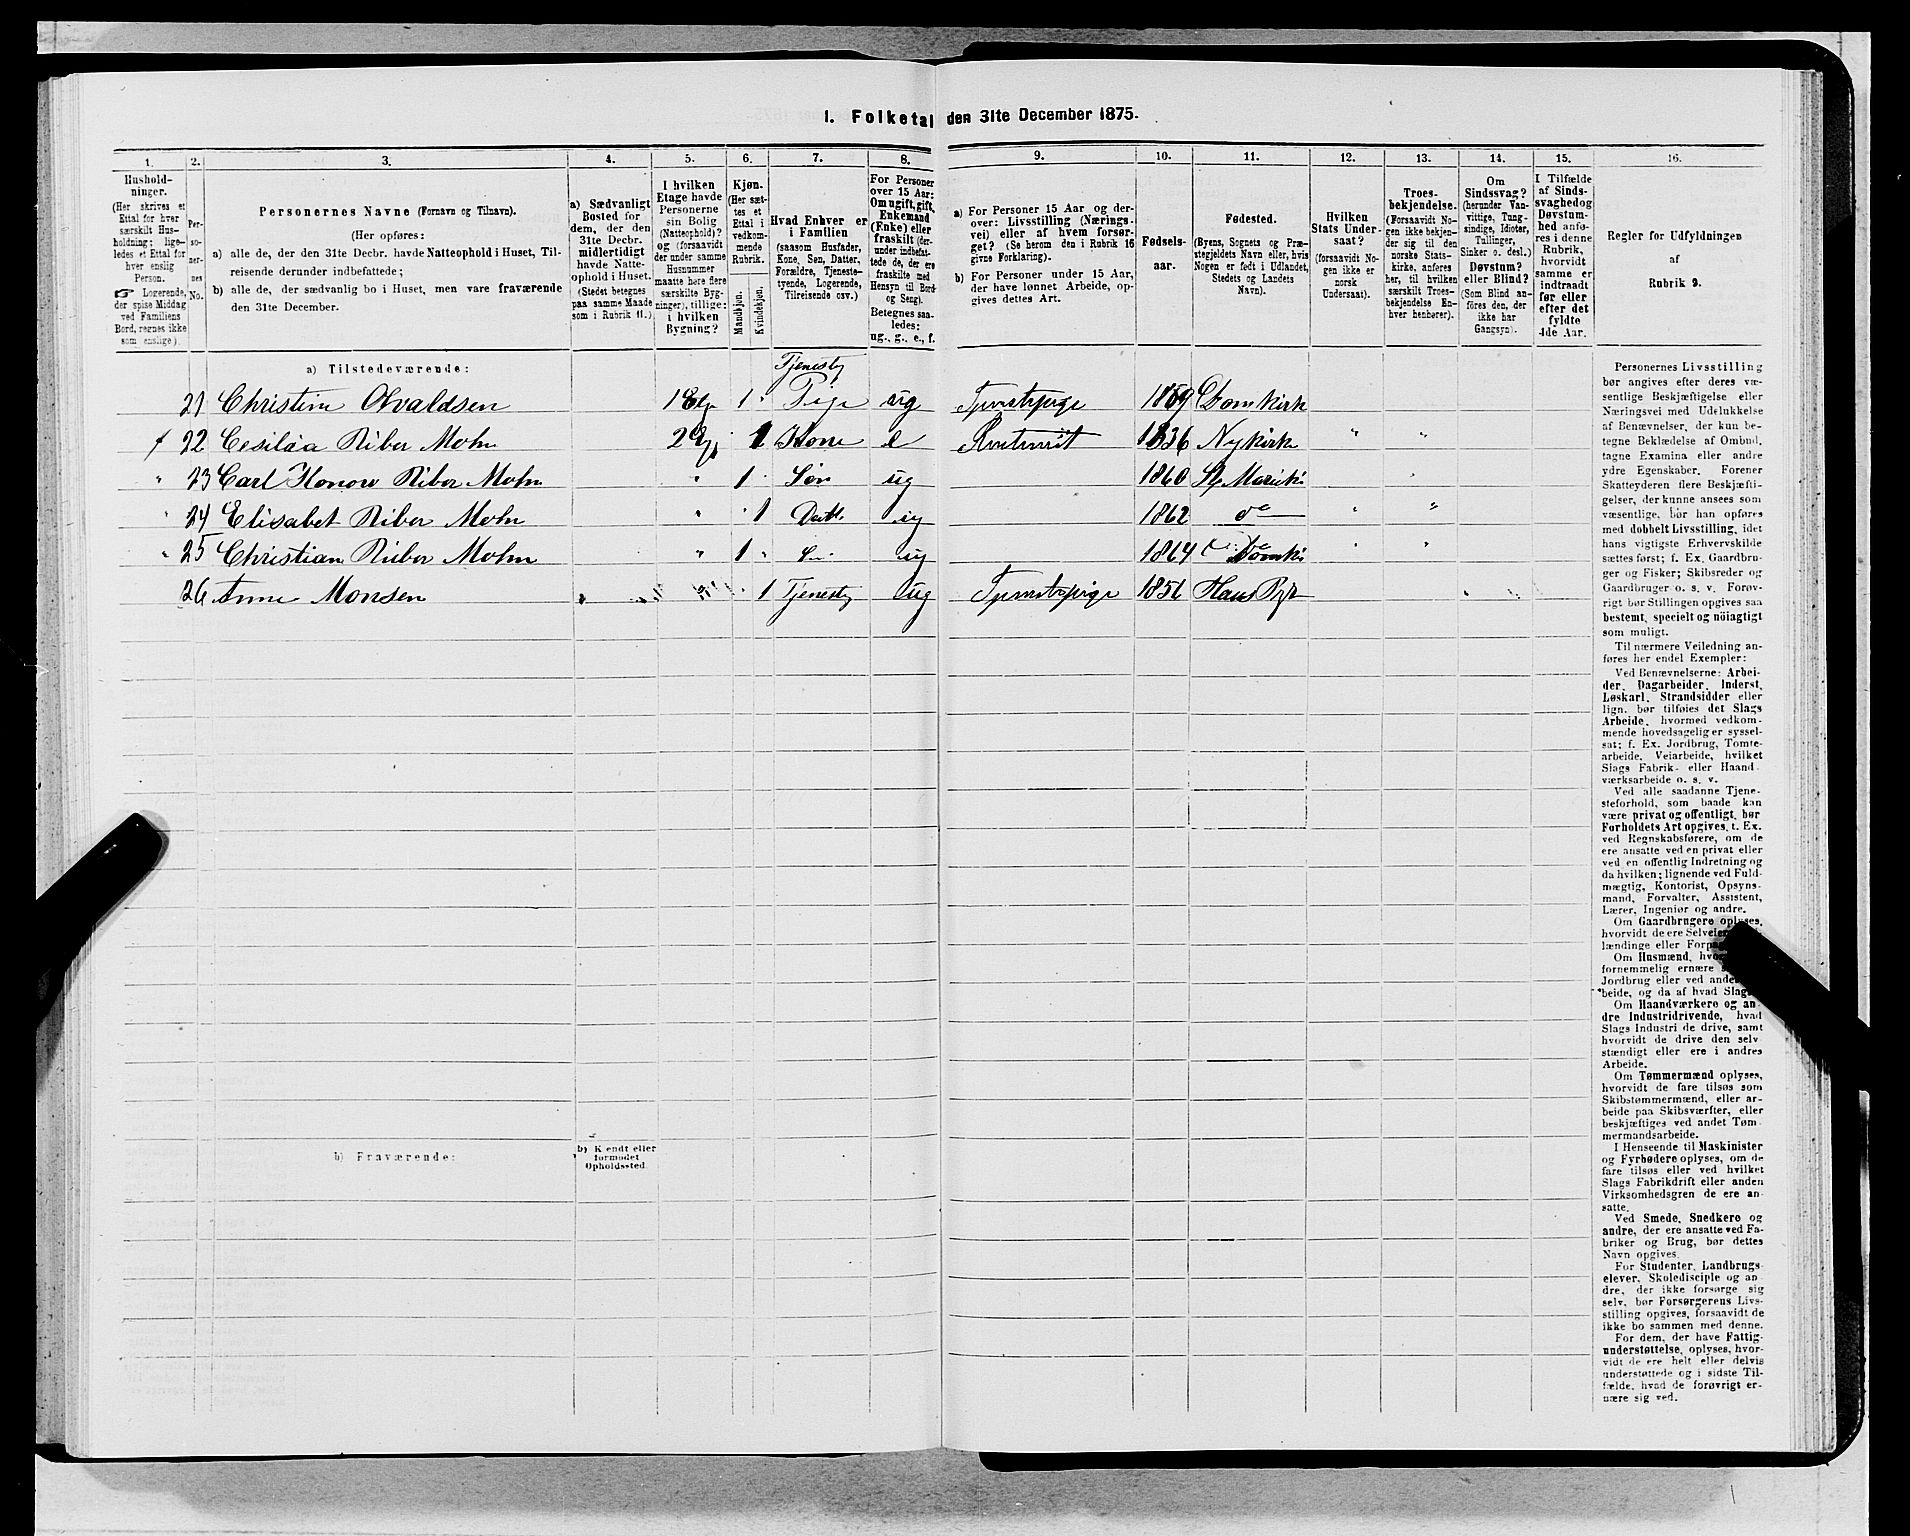 1. Folketal den 31te December 1875.
1. 2. 3. 4. 5. 6. 7. 8. 9. 10. 11. 12. 13. 14. 15. 16.
Hushold-
ninger.
(Her skrives et
Ettal for hver
særskilt Hus-
holdning; lige-
ledes et Ettal for
hver enslig
Person.
☞ Logerende,
der spise Middag
ved Familiens
Bord, regnes ikke
som enslige).
Per-
so-
ner-
nes
No.
Personernes Navne (Fornavn og Tilnavn).
(Her opføres:
a) alle de, der den 31te Decbr. havde Natteophold i Huset, Til-
reisende derunder indbefattede;
b) alle de, der sædvanlig bo i Huset, men vare fraværende
den 31te December.
a) Sædvanligt
Bosted for
dem, der den
31te Decbr.
midlertidigt
havde Natte-
ophold i Huset.
(Stedet betegnes
paa samme Maade
som i Rubrik 11.)
I hvilken
Etage havde
Personerne
sin Bolig
(Natteophold)?
og (forsaavidt
der under samme
Husnummer
maatte høre flere
særskilte Byg-
ninger), tillige:
i hvilken
Bygning?
Kjøn.
(Her sæt-
tes et
Ettal i
vedkom-
mende
Rubrik.
Mandkjøn.
Kvindekjøn.
Hvad Enhver er
i Familien
(saasom Husfader,
Kone, Søn, Datter,
Forældre, Tjeneste-
tyende, Logerende,
Tilreisende osv.)
For Personer
over 15 Aar:
Om ugift, gift,
Enkemand
(Enke) eller
fraskilt (der-
under indbefat-
tede de, der ere
fraskilte med
Hensyn til Bord
og Seng).
Betegnes saa-
ledes:
ug., g., e., f.
a) For Personer 15 Aar og der-
over: Livsstilling (Nærings-
vei) eller af hvem forsør-
get? (Se herom den i Rubrik 16
givne Forklaring).
b) For Personer under 15 Aar,
der have lønnet Arbeide, op-
gives dettes Art.
Fødsels-
aar.
Fødested.
(Byens, Sognets og Præ-
stegjeldets Navn eller, hvis
Nogen er født i Udlandet,
Stedets og Landets
Navn).
Hvilken
Stats Under-
saat?
(forsaavidt No-
gen ikke er
norsk
Undersaat).
Troes-
bekjendelse.
(Forsaavidt No-
gen ikke bekjen-
der sig til den
norske Stats-
kirke, anføres
her, til hvilken
særskilt Troes-
bekjendelse En-
hver henhører).
Om
Sindssvag?
(herunder Van-
vittige, Tung-
sindige, Idioter,
Tullinger,
Sinker o. desl.)
Døvstum?
eller Blind?
(Som Blind an-
føres den, der
ikke har
Gangsyn).
I Tilfælde
af Sinds-
svaghed og
Døvstum-
hed anfø-
res i denne
Rubrik,
hvorvidt
samme er
indtraadt
før eller
efter det
fyldte
4de Aar.
Regler for Udfyldningen
af
Rubrik 9.
a) Tilstedeværende:
21 Christine Olvaldsen 1 Etg 1 Tjenesty Pige ug Tjenestepige 1859 Domkirk
22 Cesilia Riber Mohn 2 Etg 1 Kone e 1836 Nykirk " "
" 23 Carl Konow Riber Mohn " 1 Søn ug 1860 St Mariek "
" 24 Elisabet Riber Mohn " 1 Datt. ug 1862 do " "
" 25 Christian Riber Mohn " 1 S ug 1864 Domk " "
26 Anne Monsen " 1 Tjenesty ug Tjenestepige 1856 Haus
Personernes Livsstilling
bør angives efter deres væ-
sentlige Beskjæftigelse eller
Næringsvei med Udelukkelse
af Benævnelser, der kun be-
tegne Beklædelse af Ombud,
tagne Examina eller andre
ydre Egenskaber. Forener
Skatteyderen flere Beskjæfti-
gelser, der kunne ansees som
væsentlige, bør han opføres
med dobbelt Livsstilling, idet
hans vigtigste Erhvervskilde
sættes først; f. Ex. Gaardbru-
ger og Fisker; Skibsreder og
Gaardbruger o. s. v. Forøv-
rigt bør Stillingen opgives saa
bestemt, specielt og nöiagtigt
som muligt.
Til nærmere Veiledning an-
føres her endel Exempler:
Ved Benævnelserne: Arbei-
der, Dagarbeider, Inderst,
Løskarl, Strandsidder eller
lign. bør tilføies det Slags
Arbeide, hvormed vedkom-
mende hovedsagelig er syssel-
sat; f. Ex. Jordbrug, Tomte-
arbeide, Veiarbeide, hvilket
Slags Fabrik- eller Haand-
værksarbeide o. s. v.
Ved alle saadanne Tjene-
steforhold, som baade kan
være privat og offentligt, bør
Forholdets Art opgives, t. Ex.
ved Regnskabsførere, om de
ere ansatte ved en privat eller
ved en offentlig Indretning og
da hvilken; lignende ved Fuld-
mægtig, Kontorist, Opsyns-
mand, Forvalter, Assistent,
Lærer, Ingeniør og andre.
Om Gaardbrugere oplyses,
hvorvidt de ere Selveiere,
lændinge eller
Om Husmænd,
fornemmelig ernære
Jordbrug eller ved
beide, og da af hvad Slags
Om Haandværkere og an-
dre Industridrivende, hvad
Slags Industri de drive, samt
hvorvidt de drive den selv-
stændigt eller ere i andres
Arbeide.
Om Tømmermænd oplyses,
hvorvidt de fare tilsøs som
Skibstømmermænd, eller ar-
beide paa Skibsværfter, eller
beskjæftiges ved andet Tøm-
mermandsarbeide.
I Henseende til Maskinister
og Fyrbødere oplyses, om de
fare tilsøs eller ved hvilket
Slags Fabrikdrift eller anden
Virksomhedsgren de ere an-
satte.
Ved Smede, Snedkere og
andre, der ere ansatte ved Fa-
briker og Brug, bør dettes
Navn opgives.
For Studenter, Landbrugs-
elever, Skoledisciple og an-
dre, der ikke forsørge sig
selv, bør Forsørgerens Livs-
stilling opgives, forsaavidt de
ikke bo sammen med denne.
For dem, der have Fattig-
understøttelse, oplyses, hvor-
vidt de ere helt eller delvis
understøttede og i sidste Til-
fælde, hvad de forøvrigt er-
nære sig ved.
b) Fraværende:
b) Kendt eller
formodet
Opholdssted.